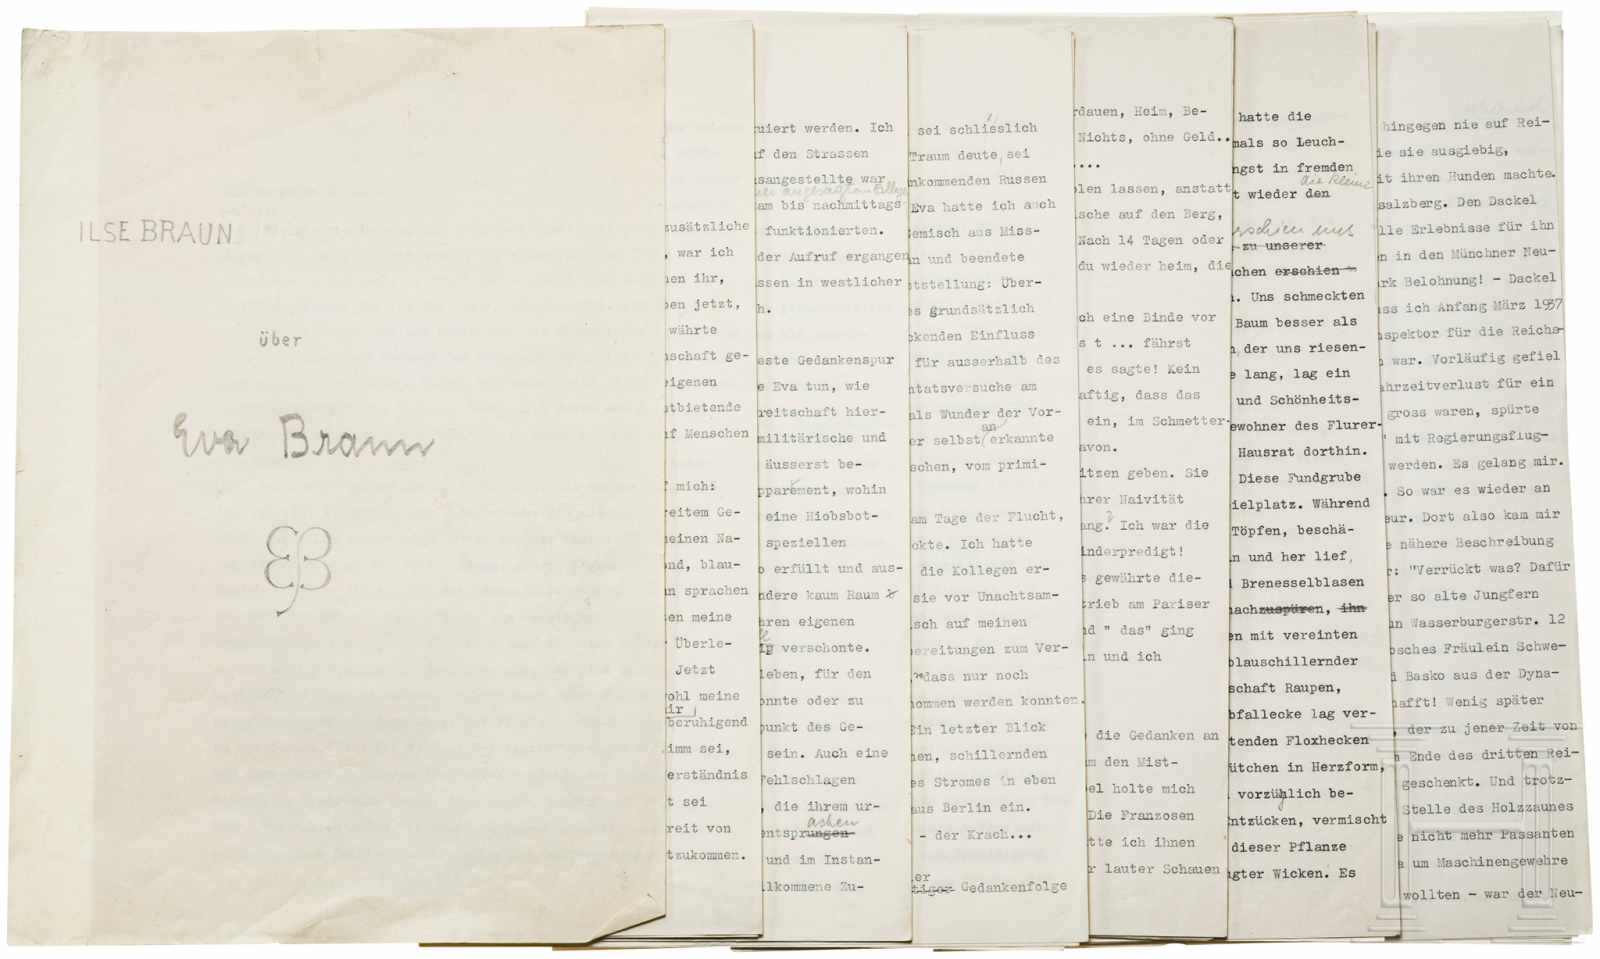 ILSE BRAUN
über
Eva Braun
EB
zusätzliche
, war ich
nen ihr,
ben jetzt,
währte
nschaft ge-
eigenen
tbietende
uf Menschen
f mich:
reitem Ge-
meinen Na-
end, blau-
n sprachen
en meine
r Überle-
Jetzt
ohl meine
ir
beruhigend
imm sei,
erständnis
t sei
reit von
tzukommen.
uiert werden. Ich
uf den Strassen
sangestellte war
am bis nachmittags
funktionierten.
der Aufruf ergangen
ssen in westlicher
h.
este Gedankenspur
e Eva tun, wie
reitschaft hier-
militärische und
äusserst be-
ppartement, wohin
eine Hiobsbot-
speziellen
o erfüllt und aus-
ndere kaum Raum
hren eigenen
verschonte.
leben, für den
onnte oder zu
punkt des Ge-
sein. Auch eine
Fehlschlagen
, die ihrem ur-
ashen
entsprungen
und im Instan-
llkommene Zu-
sei schlisslich
Traum deute, sei
nkommenden Russen
Eva hatte ich auch
Gemisch aus Miss-
n und beendete
tstellung: Über-
es grundsätzlich
ckenden Einfluss
für ausserhalb des
ntatsversuche am
als Wunder der Vor-
an
er selbst erkannte
schen, vom primi-
am Tage der Flucht,
ockte. Ich hatte
die Kollegen er-
sie vor Unachtsam-
sch auf meinen
ereitungen zum Ver-
dass nur noch
nommen werden konnten.
Ein letzter Blick
nen, schillernden
es Stromes in eben
aus Berlin ein.
- der Krach...
er
tiger Gedankenfolge
rdauen, Heim, Be-
Nichts, ohne Geld..
....
olen lassen, anstatt
sche auf den Berg,
Nach 14 Tagen oder
du wieder heim, die
ch eine Binde vor
s t ... fährst
es sagte! Kein
aftig, dass das
ein, im Schmetter-
avon.
itzen geben. Sie
hrer Naivität
ang? Ich war die
inderpredigt!
s gewährte die-
trieb am Pariser
nd " das" ging
n und ich
die Gedanken an
m den Mist-
el holte mich
Die Franzosen
tte ich ihnen
r lauter Schauen
hatte die
mals so Leuch-
ngst in fremden
die kleine
t wieder den
erschien uns
zu unserer
chen erschien
. Uns schmeckten
Baum besser als
, der uns riesen-
e lang, lag ein
und Schönheits-
ewohner des Flurer-
Hausrat dorthin.
Diese Fundgrube
ielplatz. Während
Töpfen, beschä-
n und her lief,
d Brenesselblasen
nachzuspüren, ihn
en mit vereinten
blauschillernder
schaft Raupen,
bfallecke lag ver-
tenden Floxhecken
ütchen in Herzform,
vorzüglich be-
ntzücken, vermischt
dieser Pflanze
gter Wicken. Es
hingegen nie auf Rei-
ie sie ausgiebig,
it ihren Hunden machte.
salzberg. Den Dackel
lle Erlebnisse für ihn
n in den Münchner Neu-
rk Belohnung! - Dackel
ss ich Anfang März 1937
nspektor für die Reichs-
n war. Vorläufig gefiel
ahrzeitverlust für ein
gross waren, spürte
" mit Regierungsflug-
werden. Es gelang mir.
. So war es wieder an
eur. Dort also kam mir
e nähere Beschreibung
r: "Verrückt was? Dafür
er so alte Jungfern
n Wasserburgerstr. 12
osches Fräulein Schwe-
d Basko aus der Dyna-
hafft! Wenig später
, der zu jener Zeit von
m Ende des dritten Rei-
geschenkt. Und trotz-
Stelle des Holzzaunes
e nicht mehr Passanten
a um Maschinengewehre
wollten - war der Neu-